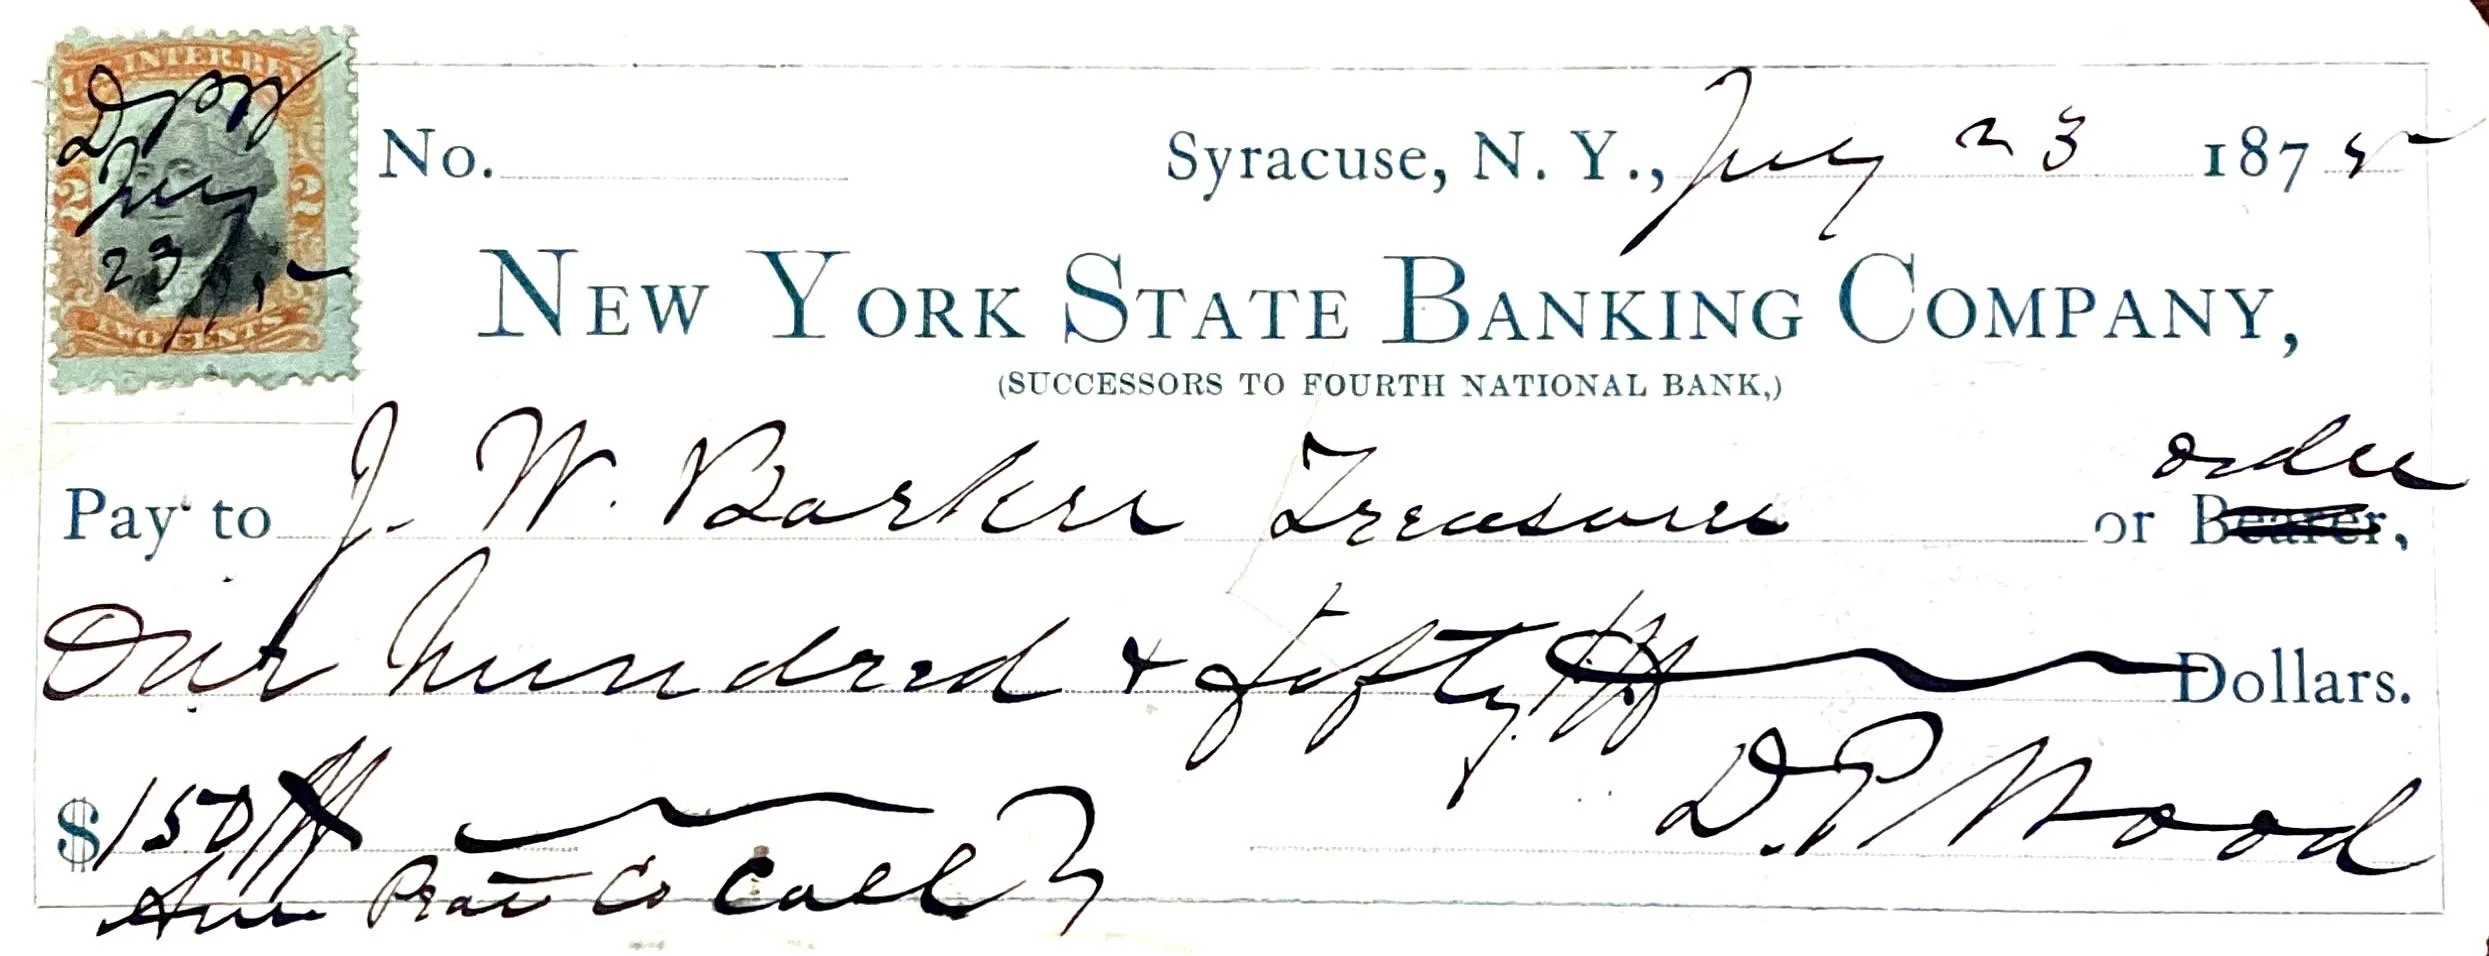 U.S. INTER. REV.
DPW
July
23
2 2
TWO CENTS
No. Syracuse, N. Y., July 23 1875
NEW YORK STATE BANKING COMPANY,
(SUCCESSORS TO FOURTH NATIONAL BANK,)
order
Pay to J. W. Barker Treasurer or Bearer,
One hundred & fifty Dollars.
$150 D. P. Wood
Co Call 7